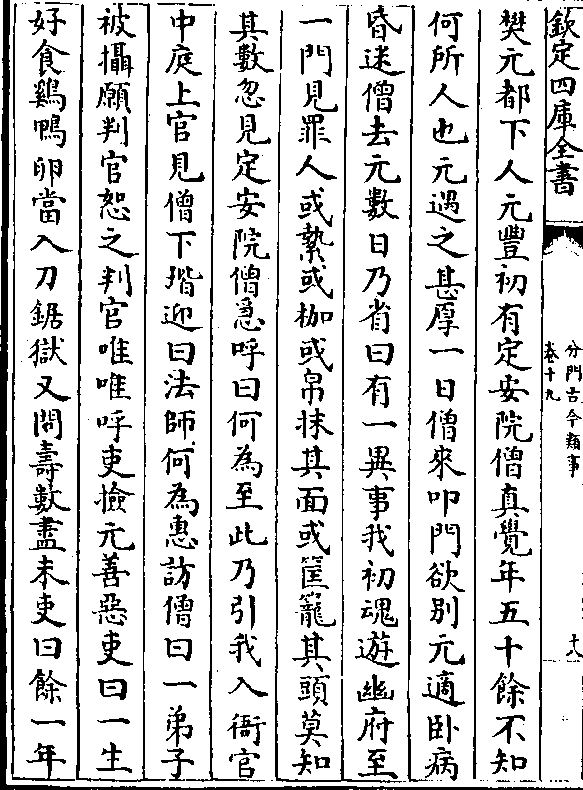 欽定四庫全書
分門古今類事
卷十九
十八
樊元都下人元豐初有定安院僧真覺年五十餘不知
何所人也元遇之甚厚一日僧來叩門欲别元適卧病
昏迷僧去元數日乃省曰有一異事我初魂遊幽府至
一門見罪人或縶或枷或帛抹其面或筐籠其頭莫知
其數忽見定安院僧急呼曰何為至此乃引我入衙官
中庭上官見僧下堦迎曰法師何為惠訪僧曰一弟子
被攝願判官恕之判官唯唯呼吏撿元善惡吏曰一生
好食鷄鴨卵當入刀鋸獄又問壽數盡未吏曰餘一年